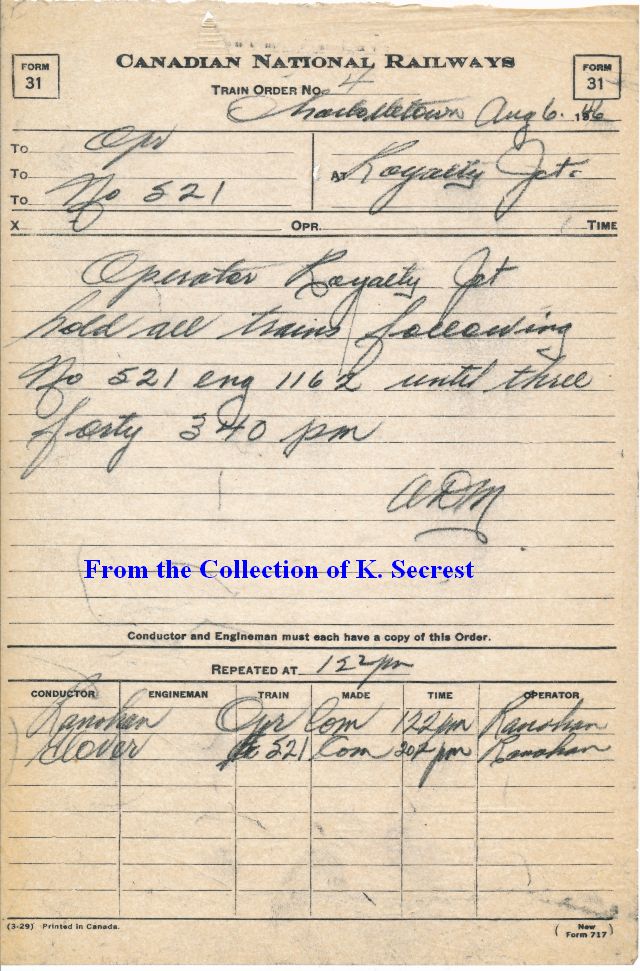 CANADIAN NATIONAL RAILWAYS
FORM 31
FORM 31
TRAIN ORDER NO. 4
Charlottetown Aug 6. 1946
TO Opr
TO
TO No 521
AT Royalty Jct.
X OPR. TIME
Operator Royalty Jct
hold all trains following
No 521 eng 1162 until three
forty 340 pm
ADM
From the Collection of K. Secrest
Conductor and Engineman must each have a copy of this Order.
REPEATED AT 122 pm
CONDUCTOR ENGINEMAN TRAIN MADE TIME OPERATOR
Ranahan Opr Com 122 pm Ranahan
Clover 521 Com 207 pm Ranahan
(3-29) Printed in Canada.
( New Form 717 )